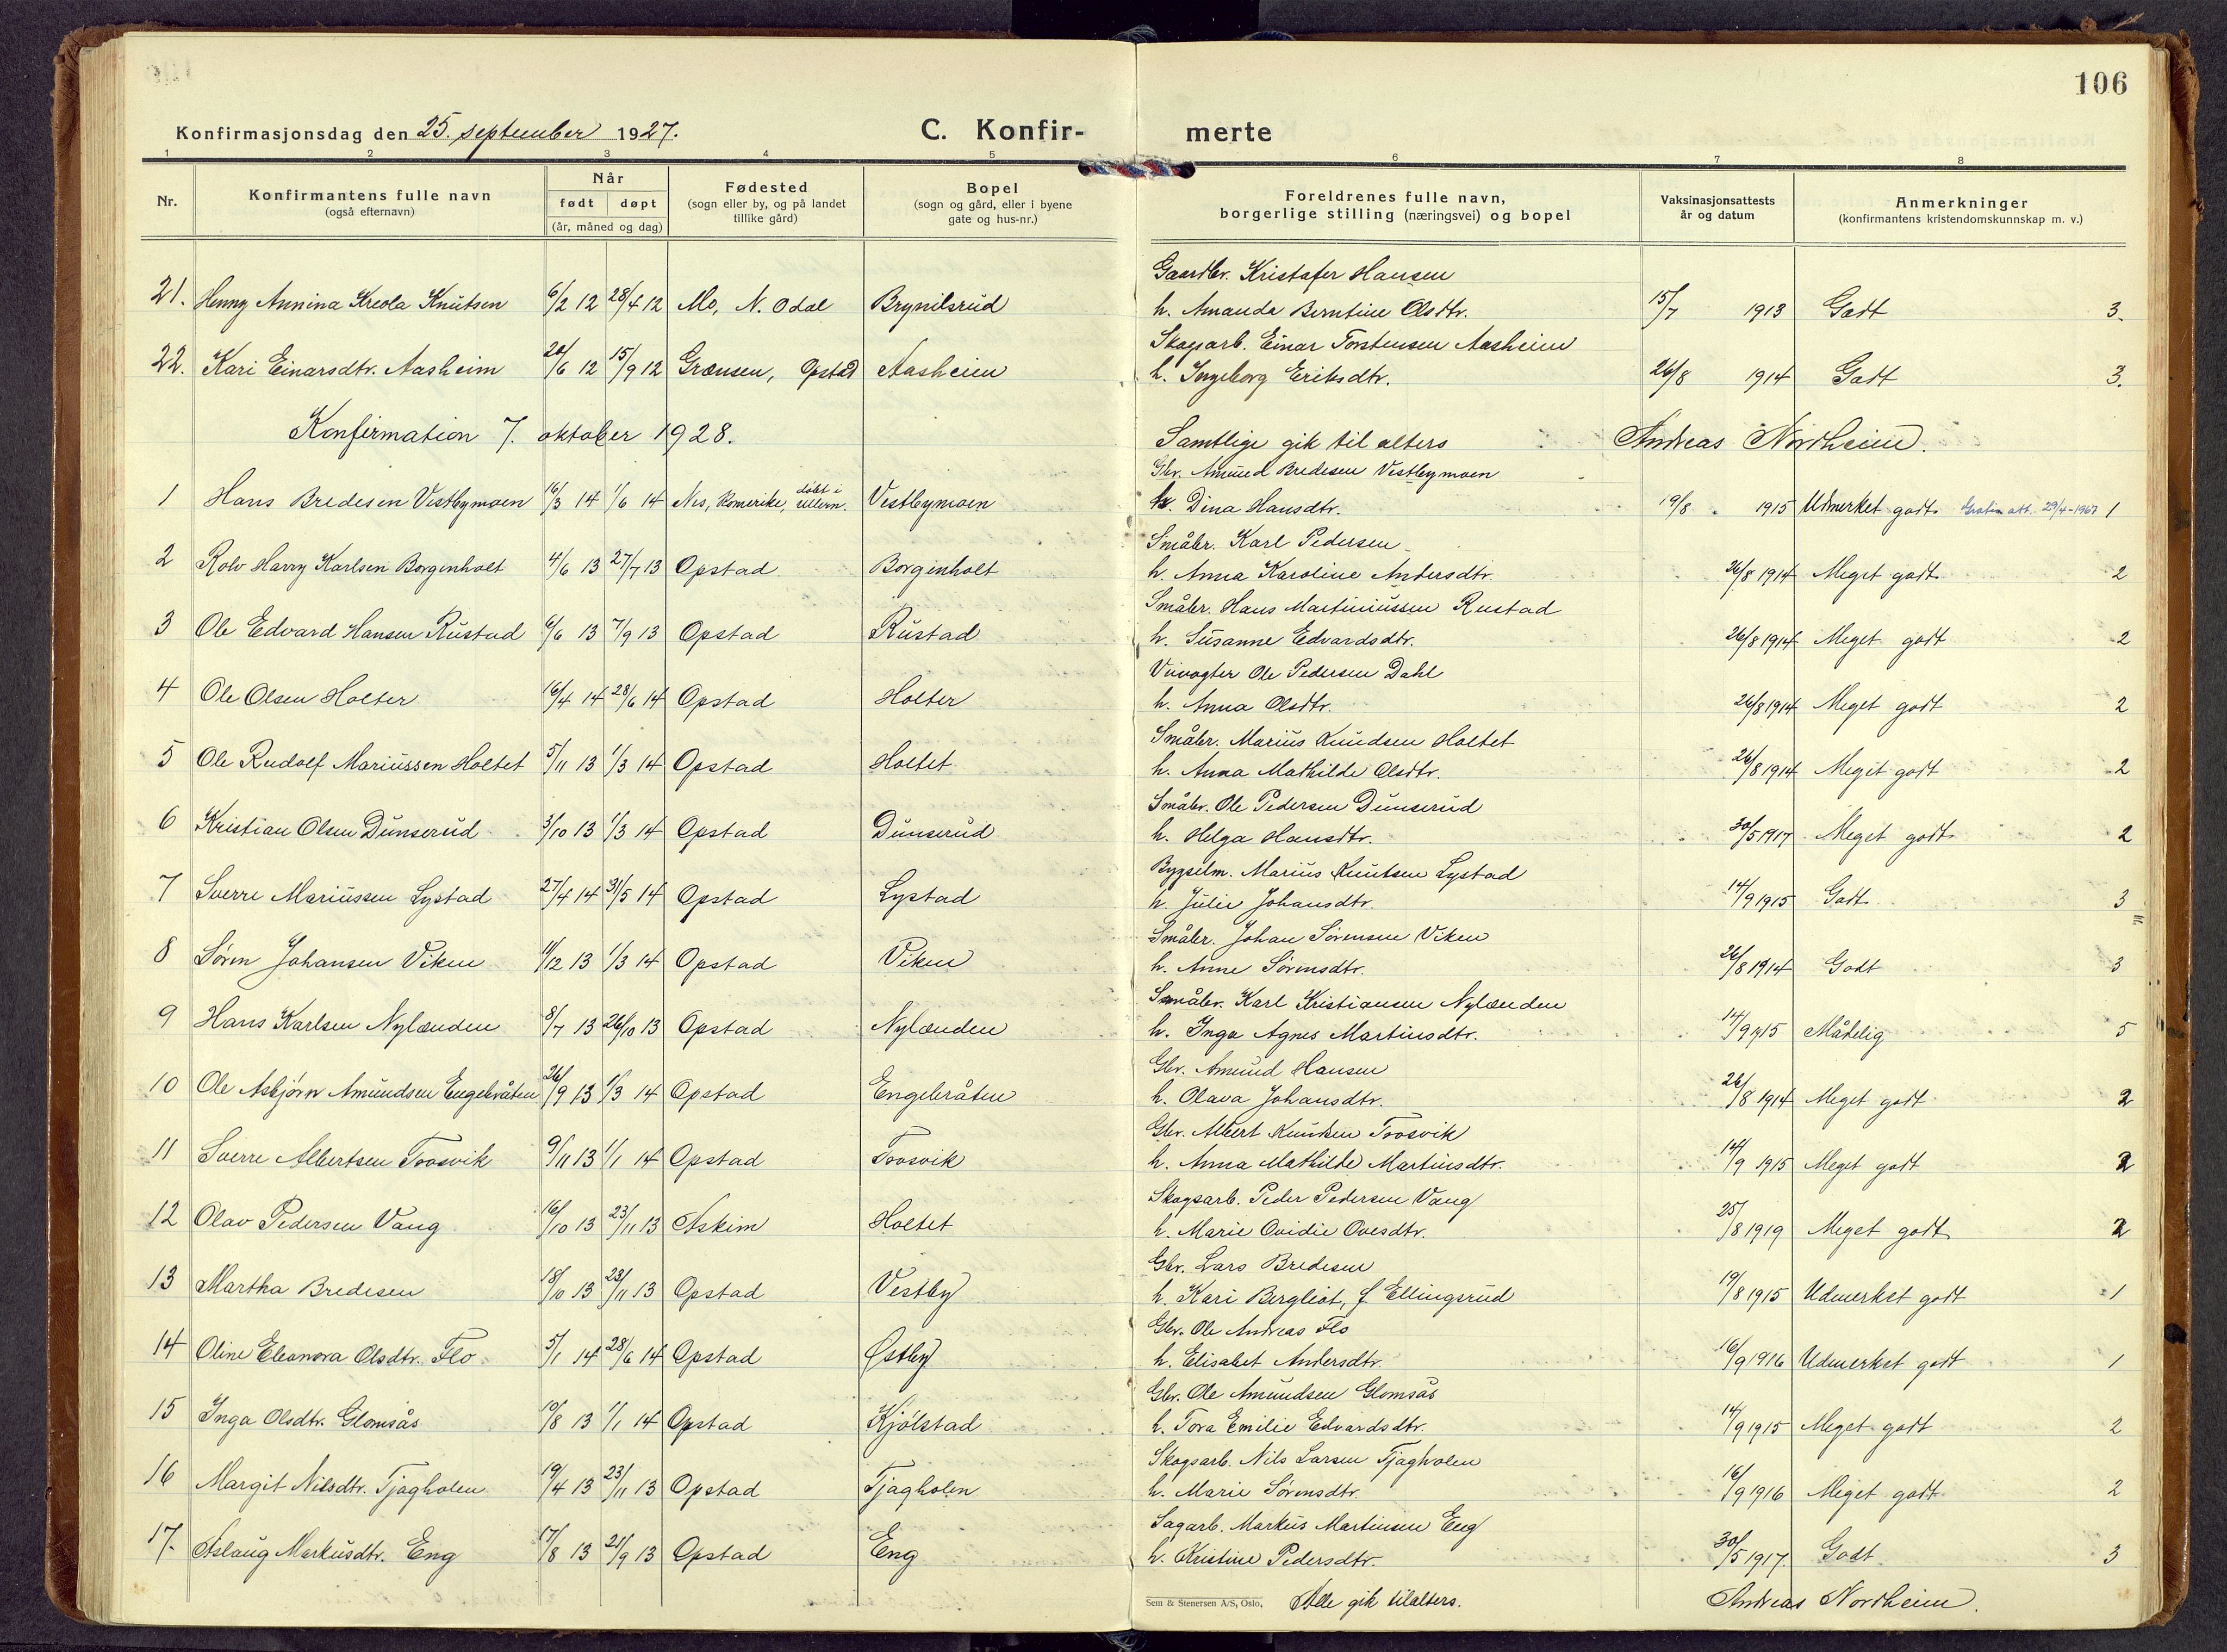 106
Konfirmasjonsdag den 25. september 1927.
C. Konfir-
merte
1 2 3 4 5 6 7 8
Nr.
Konfirmantens fulle navn
(også efternavn)
Når
født døpt
(år, måned og dag)
Fødested
(sogn eller by, og på landet
tillike gård)
Bopel
(sogn og gård, eller i byene
gate og hus-nr.)
Foreldrenes fulle navn,
borgerlige stilling (næringsvei) og bopel
Vaksinasjonsattests
år og datum
Anmerkninger
(konfirmantens kristendomskunnskap m. v.)
Gaardbr. Kristofer Hansen
21. Henny Annina Kreola Knutsen 6/2 12 28/4 12 Mo, N. Odal Brynilsrud h. Amanda Berntine Olsdtr. 15/7 1913 Godt 3.
Skogsarb. Einar Torstensen Aasheim
22. Kari Einarsdtr. Aasheim 20/6 12 15/9 12 Grænsen, Opstad Aasheim h. Ingeborg Eriksdtr. 26/8 1914 Godt 3.
Konfirmation 7. oktober 1928. Samtlige gik til alters Andreas Nordheim.
Gbr. Amund Bredesen Vestbymoen
1 Hans Bredesen Vestbymoen 16/3 14 1/6 14 Nes, Romerike, døbt i Ullern. Vestbymoen h. Dina Hansdtr. 19/8 1915 Udmerket godt. Gratis att. 29/4-1967 1
Småbr. Karl Pedersen
2 Rolv Harry Karlsen Borgenholt 4/6 13 27/7 13 Opstad Borgenholt h. Anna Karoline Andersdtr. 26/8 1914 Meget godt 2
Småbr. Hans Martiniussen Rustad
3 Ole Edvard Hansen Rustad 6/6 13 7/9 13 Opstad Rustad h. Susanne Edvardsdtr. 26/8 1914 Meget godt 2
Veivogter Ole Pedersen Dahl
4 Ole Olsen Holter 16/4 14 28/6 14 Opstad Holter h. Anna Olsdtr. 26/8 1914 Meget godt 2
Småbr. Marius Knudsen Holtet
5 Ole Rudolf Mariussen Holtet 5/11 13 1/3 14 Opstad Holtet h. Anna Mathilde Olsdtr. 26/8 1914 Meget godt 2
Småbr. Ole Pedersen Dunserud
6 Kristian Olsen Dunserud 3/10 13 1/3 14 Opstad Dunserud h. Helga Hansdtr. 30/5 1917 Meget godt 2
Bygselm. Marius Knutsen Lystad
7 Sverre Mariussen Lystad 27/4 14 31/5 14 Opstad Lystad h. Julie Johansdtr. 14/9 1915 Godt 3
Småbr. Johan Sørensen Viken
8 Søren Johansen Viken 11/12 13 1/3 14 Opstad Viken h. Anne Sørensdtr. 26/8 1914 Godt 3
Småbr. Karl Kristiansen Nylænden
9 Hans Karlsen Nylænden 8/7 13 26/10 13 Opstad Nylænden h. Inga Agnes Martinsdtr. 14/9 1915 Mådelig 5
Gbr. Amund Hansen
10 Ole Asbjørn Amundsen Engebråten 26/9 13 1/3 14 Opstad Engebråten h. Olava Johansdtr. 26/8 1914 Meget godt 2
Gbr. Albert Knudsen Trosvik
11 Sverre Albertsen Trosvik 9/11 13 1/1 14 Opstad Trosvik h. Anna Mathilde Martinsdtr. 14/9 1915 Meget godt 2
Skogsarb. Peder Pedersen Vang
12 Olav Pedersen Vang 16/10 13 23/11 13 Askim Holtet h. Marie Ovidie Ovesdtr. 25/8 1919 Meget godt 2
Gbr. Lars Bredesen
13 Martha Bredesen 18/10 13 23/11 13 Opstad Vestby h. Kari Bergliot, f. Ellingsrud 19/8 1915 Udmerket godt 1
Gbr. Ole Andreas Flo
14 Oline Eleanora Olsdtr. Flo 5/1 14 28/6 14 Opstad Østby h. Elisabet Andersdtr. 16/9 1916 Udmerket godt 1
Gbr. Ole Amundsen Glomsås
15 Inga Olsdtr. Glomsås 10/8 13 1/1 14 Opstad Kjølstad h. Tora Emilie Edvardsdtr. 14/9 1915 Meget godt 2
Skogsarb. Nils Larsen Tjagholen
16 Margit Nilsdtr. Tjagholen 19/4 13 23/11 13 Opstad Tjagholen h. Marie Sørensdtr. 16/9 1916 Meget godt 2
Sagarb. Markus Martinsen Eng
17. Aslaug Markusdtr. Eng 17/8 13 21/9 13 Opstad Eng h. Kristine Pedersdtr. 30/5 1917. Godt 3
Sem & Stenersen A/S, Oslo. Alle gik til alters. Andreas Nordheim.